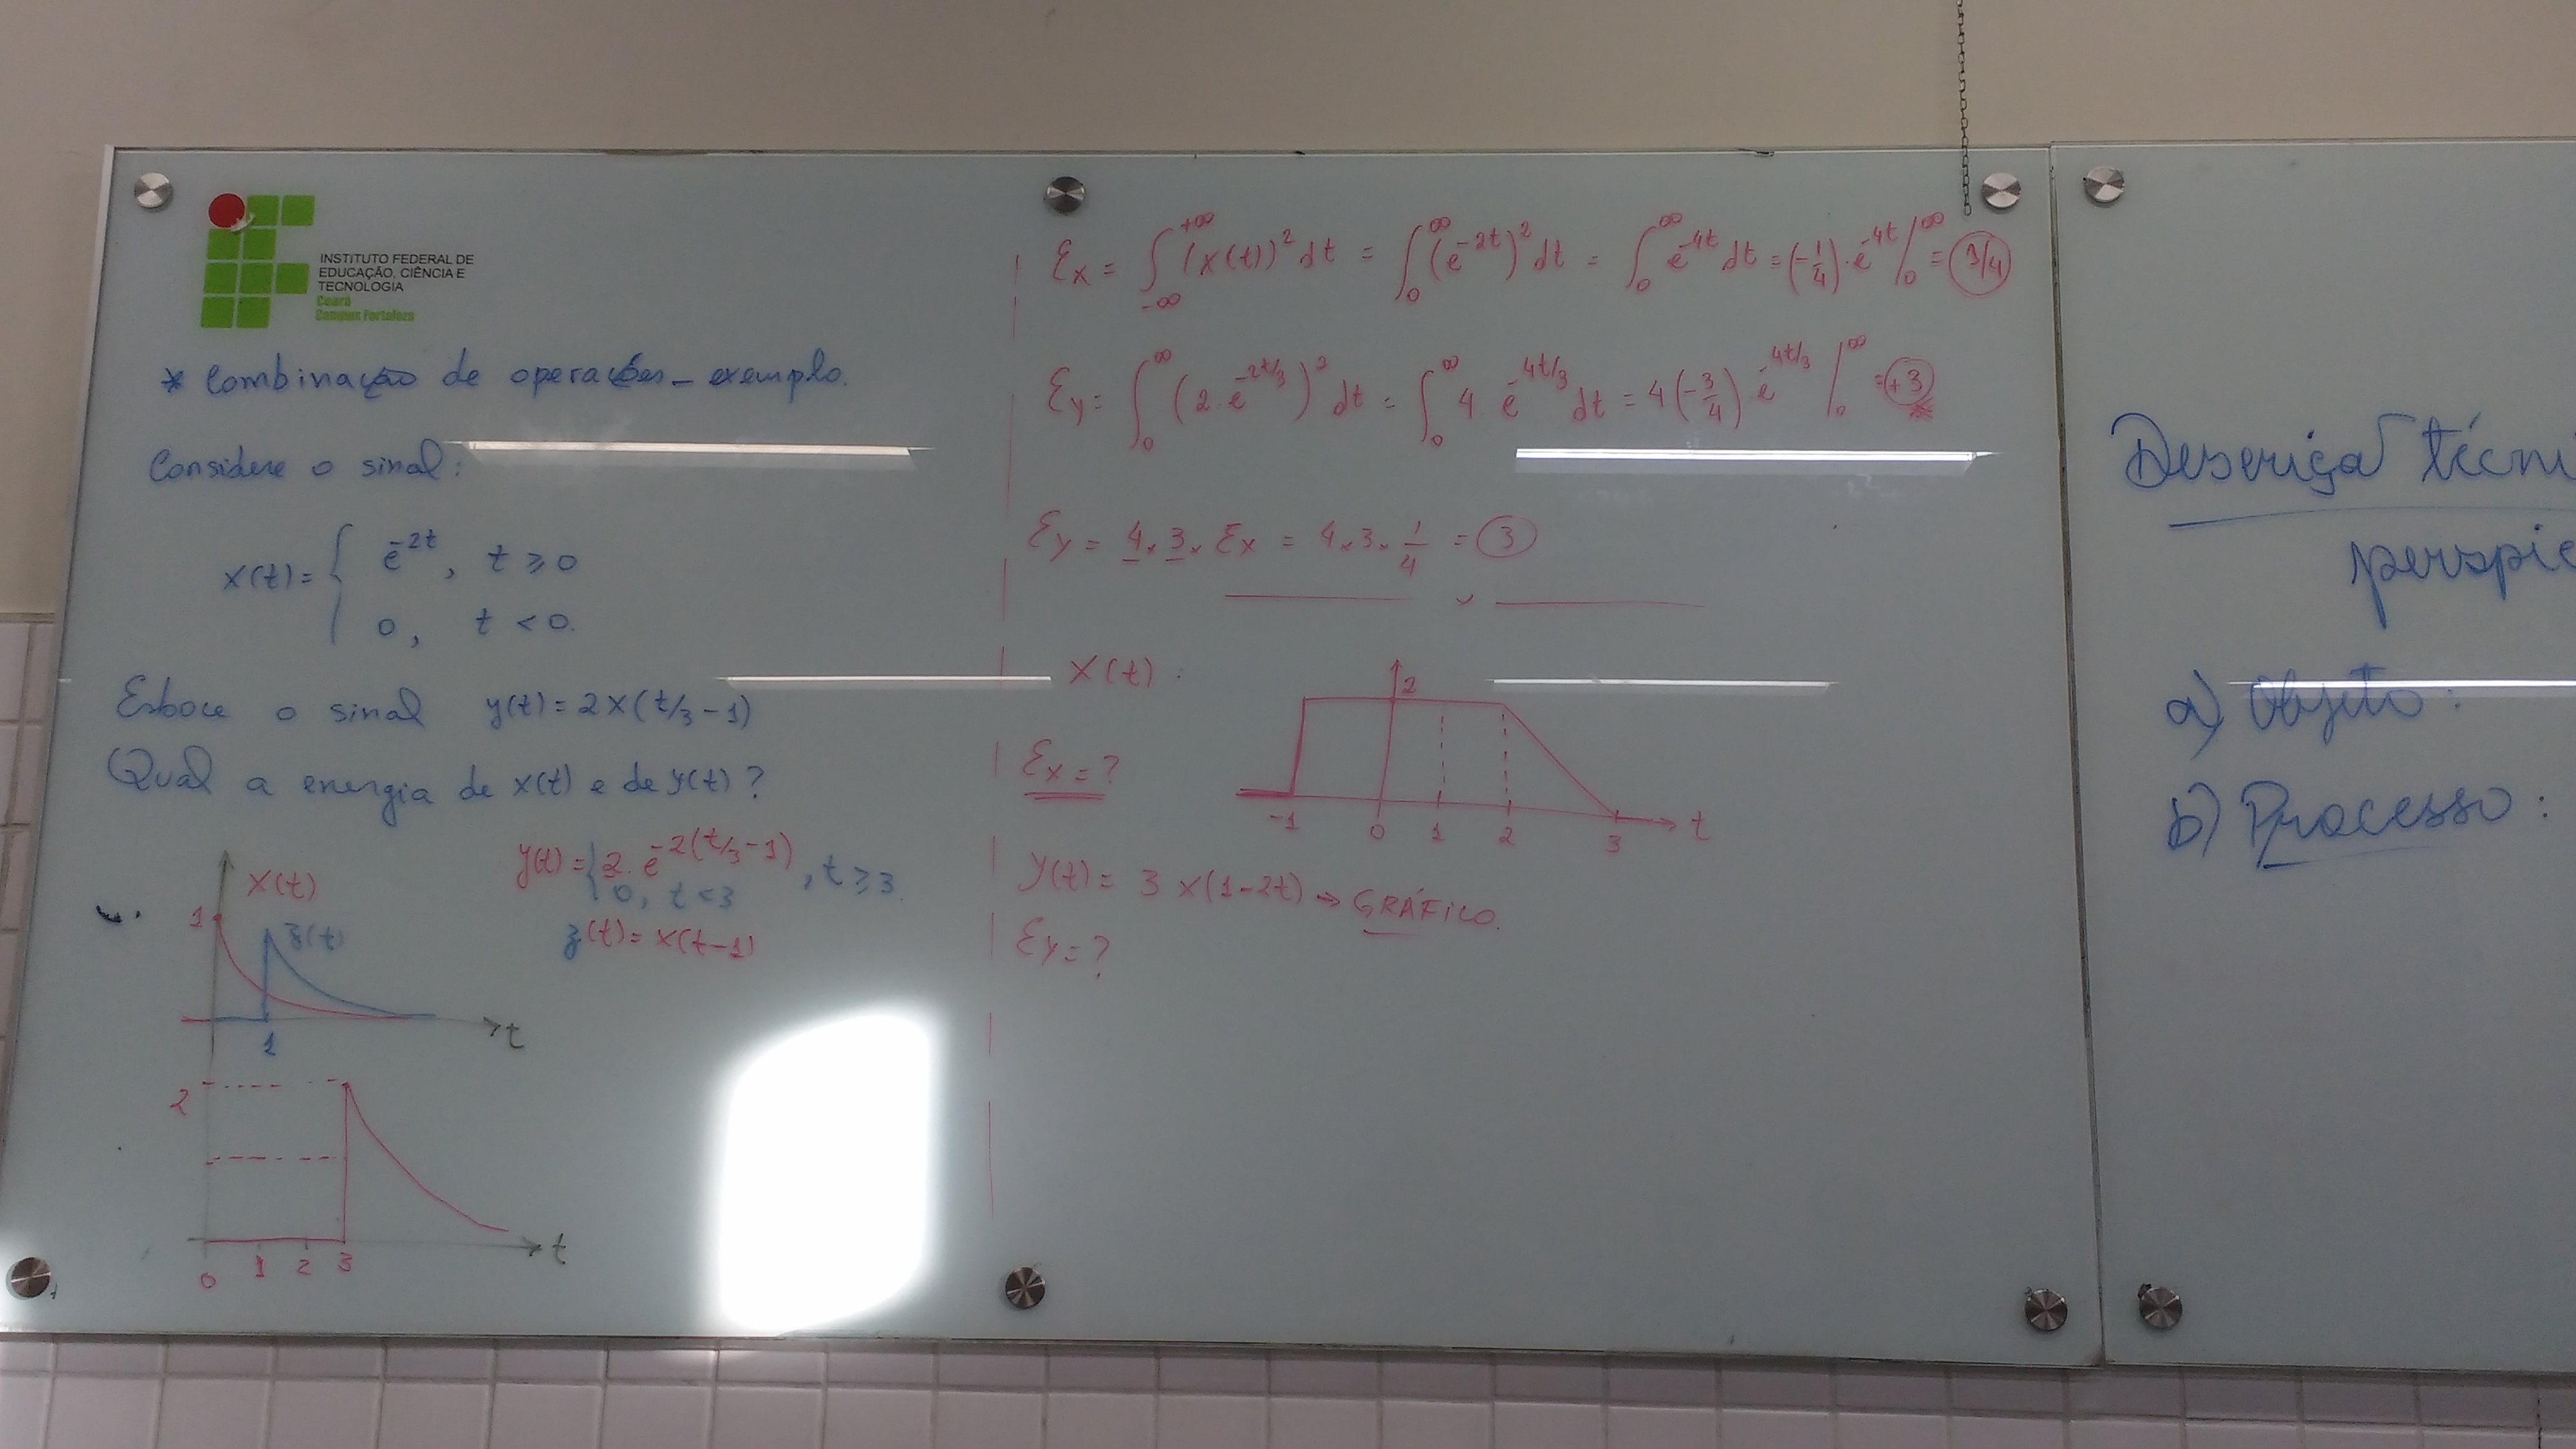 INSTITUTO FEDERAL DE
EDUCAÇÃO, CIÊNCIA E
TECNOLOGIA
Ceará
Campus Fortaleza
* Combinação de operações - exemplo.
Considere o sinal:
x(t) = { e^{-2t}, t ≥ 0
0, t < 0.
Esboce o sinal y(t) = 2x(t/3 - 1)
Qual a energia de x(t) e de y(t)?
y(t) = { 2. e^{-2(t/3 - 1)}, t ≥ 3
0, t < 3
z(t) = x(t-1)
x(t)
1
z(t)
1
t
2
0 1 2 3
t
Ex = ∫_{-∞}^{+∞} (x(t))² dt = ∫_0^∞ (e^{-2t})² dt = ∫_0^∞ e^{-4t} dt = (-1/4) . e^{-4t} /_0^∞ = 1/4
Ey = ∫_0^∞ (2. e^{-2t/3})² dt = ∫_0^∞ 4. e^{-4t/3} dt = 4 (-3/4) . e^{-4t/3} /_0^∞ = +3
Ey = 4 × 3 × Ex = 4 × 3 × 1/4 = 3
x(t) :
2
-1 0 1 2 3 t
Ex = ?
y(t) = 3 x(1-2t) → GRÁFICO.
Ey = ?
Descriçã técni
perspic
a) Objeto :
b) Processo :